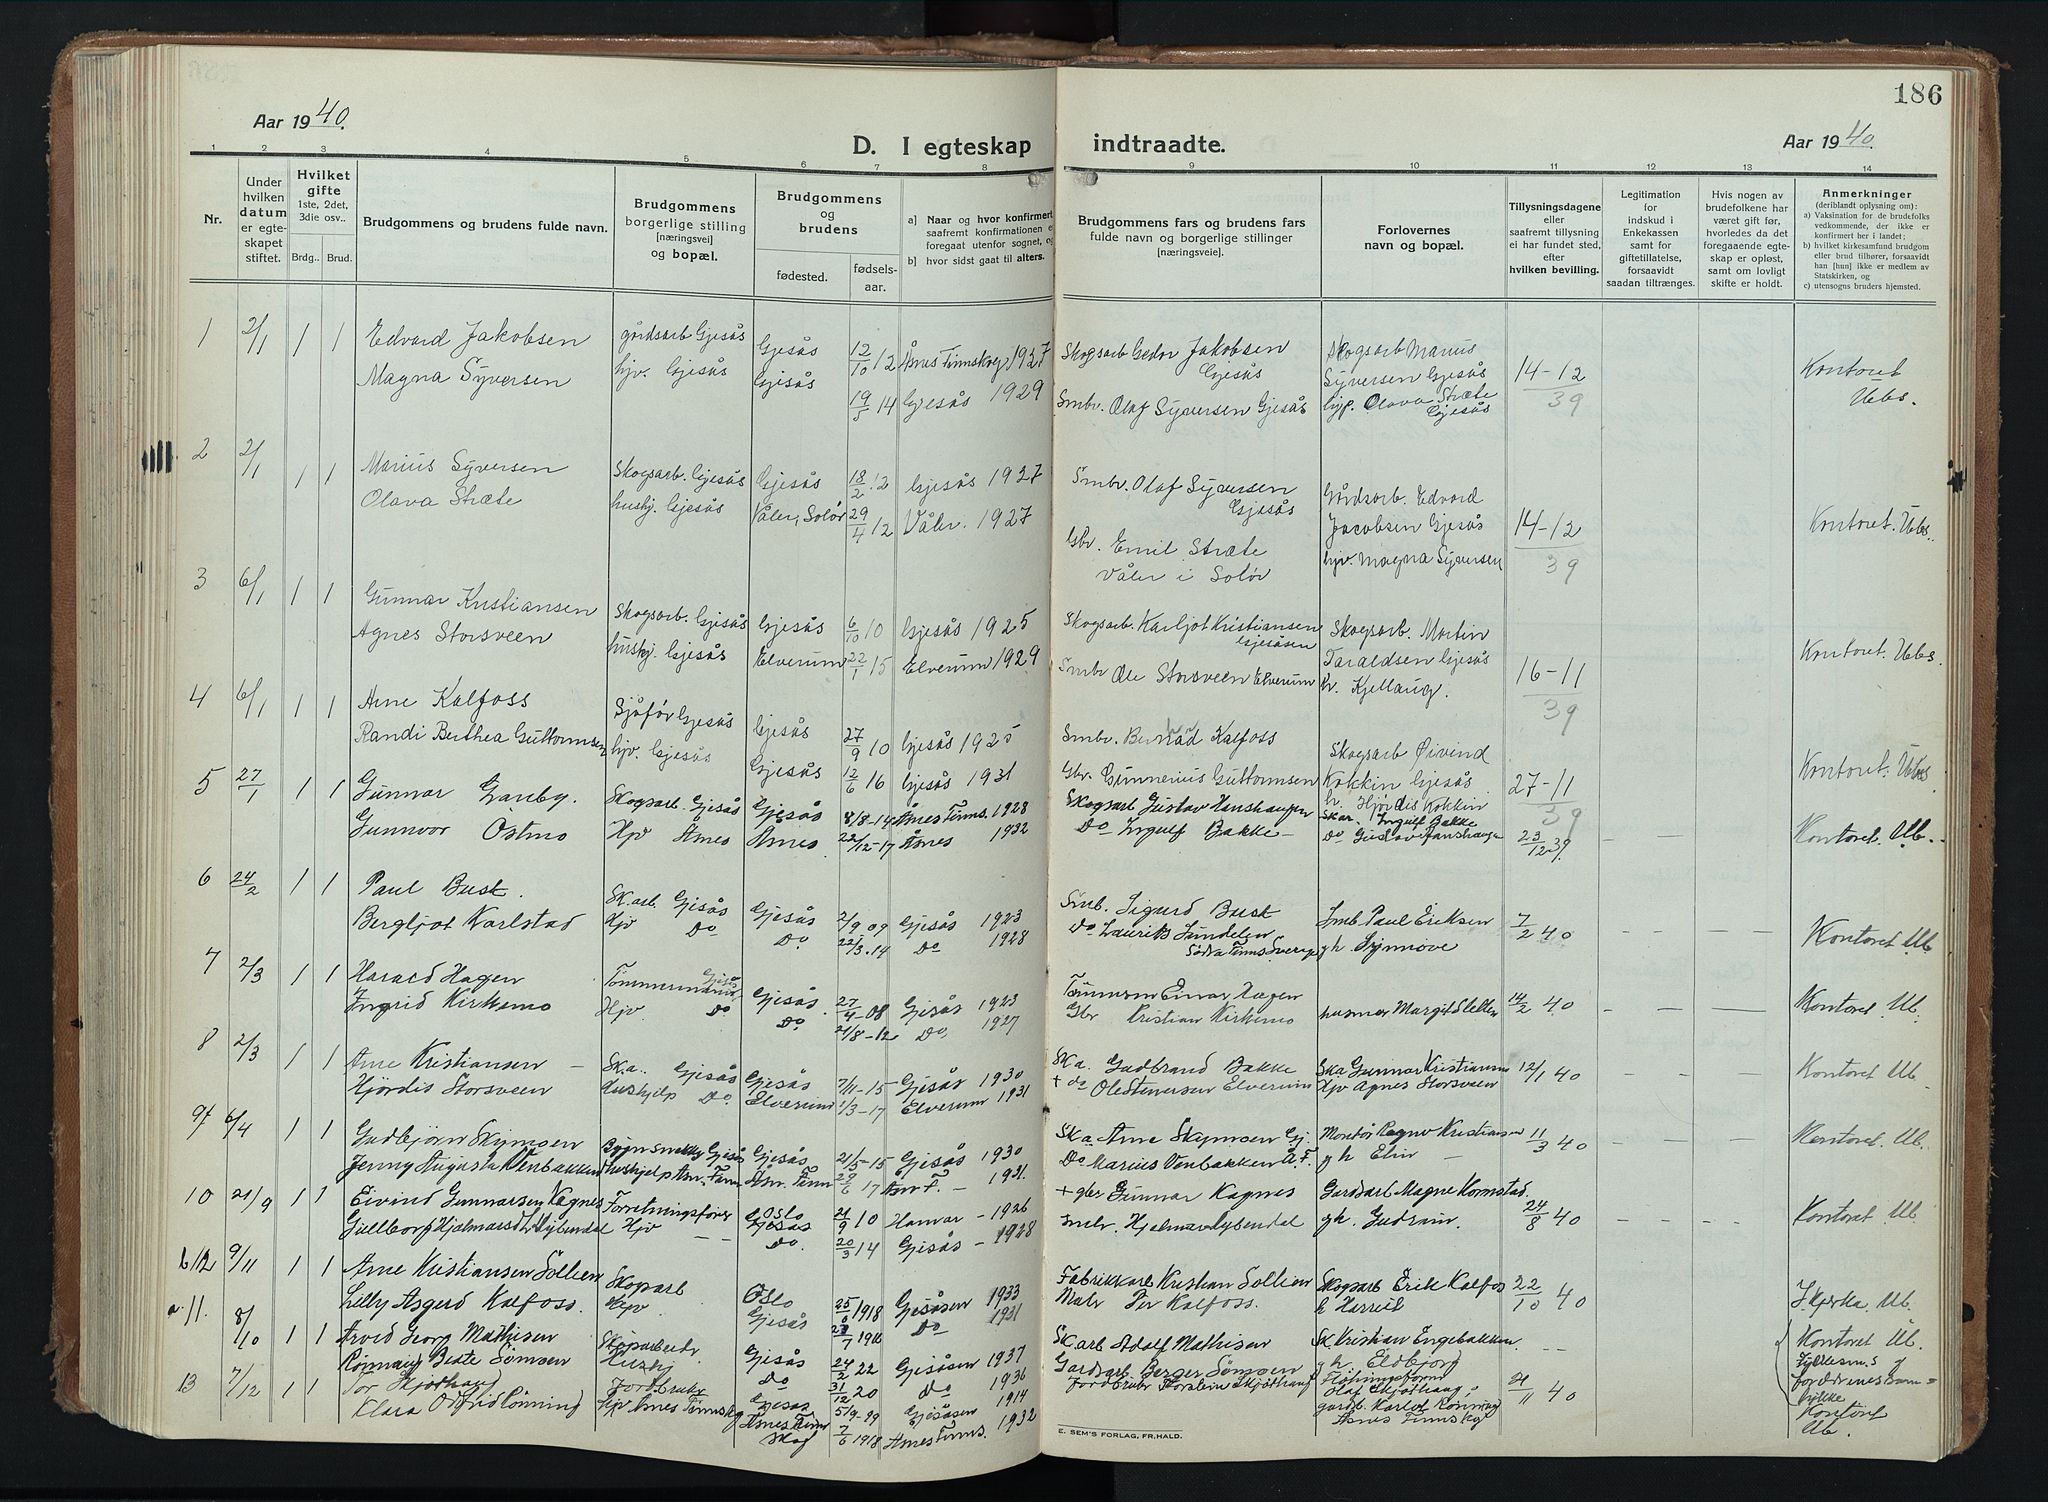 186
Aar 1940.
D. I egteskap indtraadte.
Aar 1940.
1 2 3 4 5 6 7 8 9 10 11 12 13 14
Nr.
Under hvilken datum er egteskapet stiftet.
Hvilket gifte 1ste, 2det, 3die osv..
Brdg.. Brud.
Brudgommens og brudens fulde navn.
Brudgommens borgerlige stilling [næringsvei] og bopæl.
Brudgommens og brudens
fødested. fødsels-aar.
a) Naar og hvor konfirmert saafremt konfirmationen er foregaat utenfor sognet, og
b) hvor sidst gaat til alters.
Brudgommens fars og brudens fars fulde navn og borgerlige stillinger [næringsveie].
Forlovernes navn og bopæl.
Tillysningsdagene eller saafremt tillysning ei har fundet sted, efter hvilken bevilling.
Legitimation for indskud i Enkekassen samt for giftetillatelse, forsaavidt saadan tiltrænges.
Hvis nogen av brudefolkene har været gift før, hvorledes da det foregaaende egteskap er opløst, samt om lovlig skifte er holdt.
Anmerkninger (deriblandt oplysning om):
a) Vaksination for de brudefolks vedkommende, der ikke er konfirmert her i landet;
b) hvilket kirkesamfund brudgom eller brud tilhører, forsaavidt han [hun] ikke er medlem av Statskirken, og
c) utensogns bruders hjemsted.
1 2/1 1 1 Edvard Jakobsen gårdsarb Gjesås Gjesås 12/10 12 Åsnes Finnskog 1927 Skogsarb Gedor Jakobsen Gjesås Skogsarb Marius Syversen Gjesås 14-12 39 Kontoret Ubs.
Magna Syversen hjv. Gjesås Gjesås 19/5 14 Gjesås 1929 Smbr. Olaf Syversen Gjesås hjp. Olava Stræte Gjesås
2 2/1 1 1 Marius Syversen Skogsarb. Gjesås Gjesås 18/2 12 Gjesås 1927 Smbr. Olaf Syversen Gjesås Gårdsarb. Edvard Jacobsen Gjesås 14-12 39 Kontoret. Ubs.
Olava Stræte hushj. Gjesås Våler, Solør 29/4 12 Våler. 1927 Gbr. Emil Stræte Våler i Solør hjv. Magna Syversen
3 6/1 1 1 Gunnar Kristiansen Skogsarb. Gjesås Gjesås 6/10 10 Gjesås 1925 Skogsarb. Karljot Kristiansen Gjesåsen Skogsarb. Martin Taraldsen Gjesås 16-11 39 Kontoret. Ubs.
Agnes Storsveen hushj. Gjesås Elverum 22/1 15 Elverum 1929 Smbr Ole Storsveen Elverum hr. Kjellaug.
4 6/1 1 1 Arne Kalfoss Sjåfør Gjesås Gjesås 27/9 10 Gjesås 1925 Smbr. Kalfoss Skogsarb Øivind Kokkin Gjesås 27-11 39 Kontoret. Ubs
Randi Berthea Guttormsen hjv. Gjesås Gjesås 12/6 16 Gjesås 1931 Gbr. Gunnerius Guttormsen h. Hjørdis Kokkin
5 27/1 1 1 Gunnar Granby. Skogsarb. Gjesås Gjesås 8/8-14 Åsnes Finns. 1928 Skogsarb Gustav Hanshaugen Skar. Ingulf Bakke 23/12 39 – – Kontoret. Ub.
Gunnvor Østmo Hjv Åsnes Åsnes. 22/12-17 Åsnes 1932 Do Ingulf Bakke – Do Gustav Hanshaugen
6 24/2 1 1 Paul Busk. Sk.arb. Gjesås Gjesås 2/9 09 Gjesås 1923 Smb. Sigurd Busk Smb Paul Eriksen 7/2 40 – – – Kontoret Ub
Bergljot Karlstad Hjv Do Do 22/3.14 Do 1928 Do Laurits Sundelen Södra Finns Sverige gh Synnøve
7 2/3 1 1 Harald Hagen Tømmermann Gjesås Gjesås. 27/4-08 Gjesås 1923 Tømmerm Einar Hagen husmor Margit Sletten 14/2 40 – – – Kontoret Ub.
Ingrid Kirkemo Hjv Do Do. 21/8-12 Do, 1927 Gbr Kristian Kirkemo
8 2/3 1 1 Arne Kristiansen – Sk.a.. Gjesås Gjesås 7/11-15 Gjesås 1930 Sk a. Gudbrand Bakke Ska Gunnar Kristiansen 12/1 40 – – – Kontoret Ub.
Hjørdis Storsveen Hushjelp Do. Elverum 1/3-17 Elverum 1931 + do Ole Stenersen Elverum Hjv Agnes Storsveen
9 6/4 1 1 Gudbjørn Skymoen Gjesås Gjesås 21/5-15 Gjesås 1930 Ska Arne Skymoen Gj. Montør Ragnv Kristiansen 11/3 40 – – – Kontoret Ub.
Jenny Augusta Venbakken Hushjelp Åsn. Finn Åsn. Finn 29/6 17 Åsn F. – 1931. Do Marius Venbakken Å.F. gh Elin –
10 21/9 1 1 Eivind Gunnarsen Kagnes Forretningsfører Oslo 21/9 10 Hamar – 1926 + gbr Gunnar Kagnes Gardsarb Magne Kormstad. 24/8 40 – – – Kontoret Ub.
Gullborg Hjalmarsdtr Lybendal Hjv – – Gjesås Do. 20/3 14 Gjesås – 1928 Smbr. Hjalmar Lybendal gh. Gudrun.
12 9/11 1 1 Arne Kristiansen Sollien Skogarb Oslo 25/ 1918 Gjesåsen 1933 Fabrikkarb Kristian Sollien Skogsarb Erik Kalfos 22/10 40 I kjerka. Ub.
Lilly Asgerd Kalfoss. Hjv Gjesås /7 1916 Do 1931 Per Kalfoss. h Harriet
11. 8/10 1 1 Arvid Georg Mathisen Skogarbeider Gjesås 24/2 22 Gjesåsen 1937 Sk.arb Adolf Mathisen Sk Kristian Engebakken. – – Kontoret Ub.
Rønnaug Beate Sømoen Hushj Do 31/12 20 Do 1936 Gardsarb. Berger Sømoen gh. Eldbjørg Fylkesm.s og foreldrenes samtykke
13 7/12 1 1 Tor Skjøthaug Jordbruker Gjesås 5/9-99 Gjesåsen 1914 Jordbruker Torstein Skjøthaug Olaf Skjøthaug, 21/11 40 Kontoret Ub.
Klara Odfrid Rønning Hjv Åsnes Finnskog Åsnes Finnskog 7/6 1918 Åsnes Finns. 1932 gardb. Karlot Rønning Åsnes Finnskg
E. SEM'S FORLAG, FR.HALD.